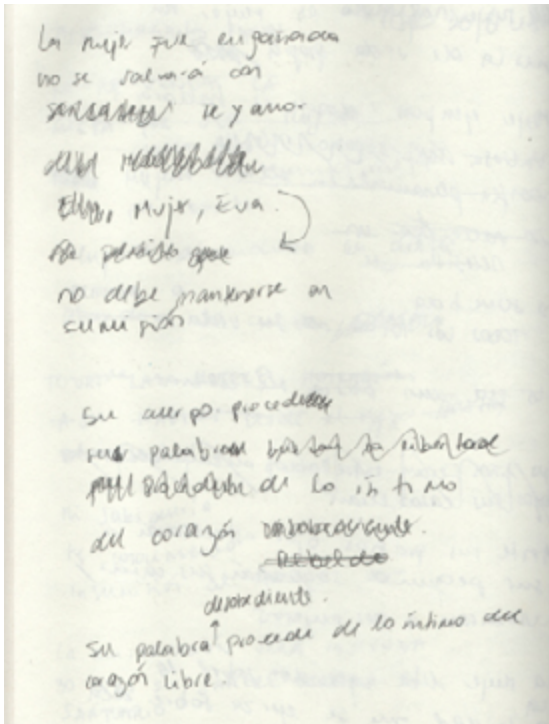 La mujer que engendra
no se salvará con
fe y amor
debe
Ella, Mujer, Eva.
no permito que
no debe mantenerse en
sumisión
Su cuerpo procede
sus palabras
de lo íntimo
del corazón
Rebelde
desobediente.
Su palabra procede de lo íntimo del
corazón libre.